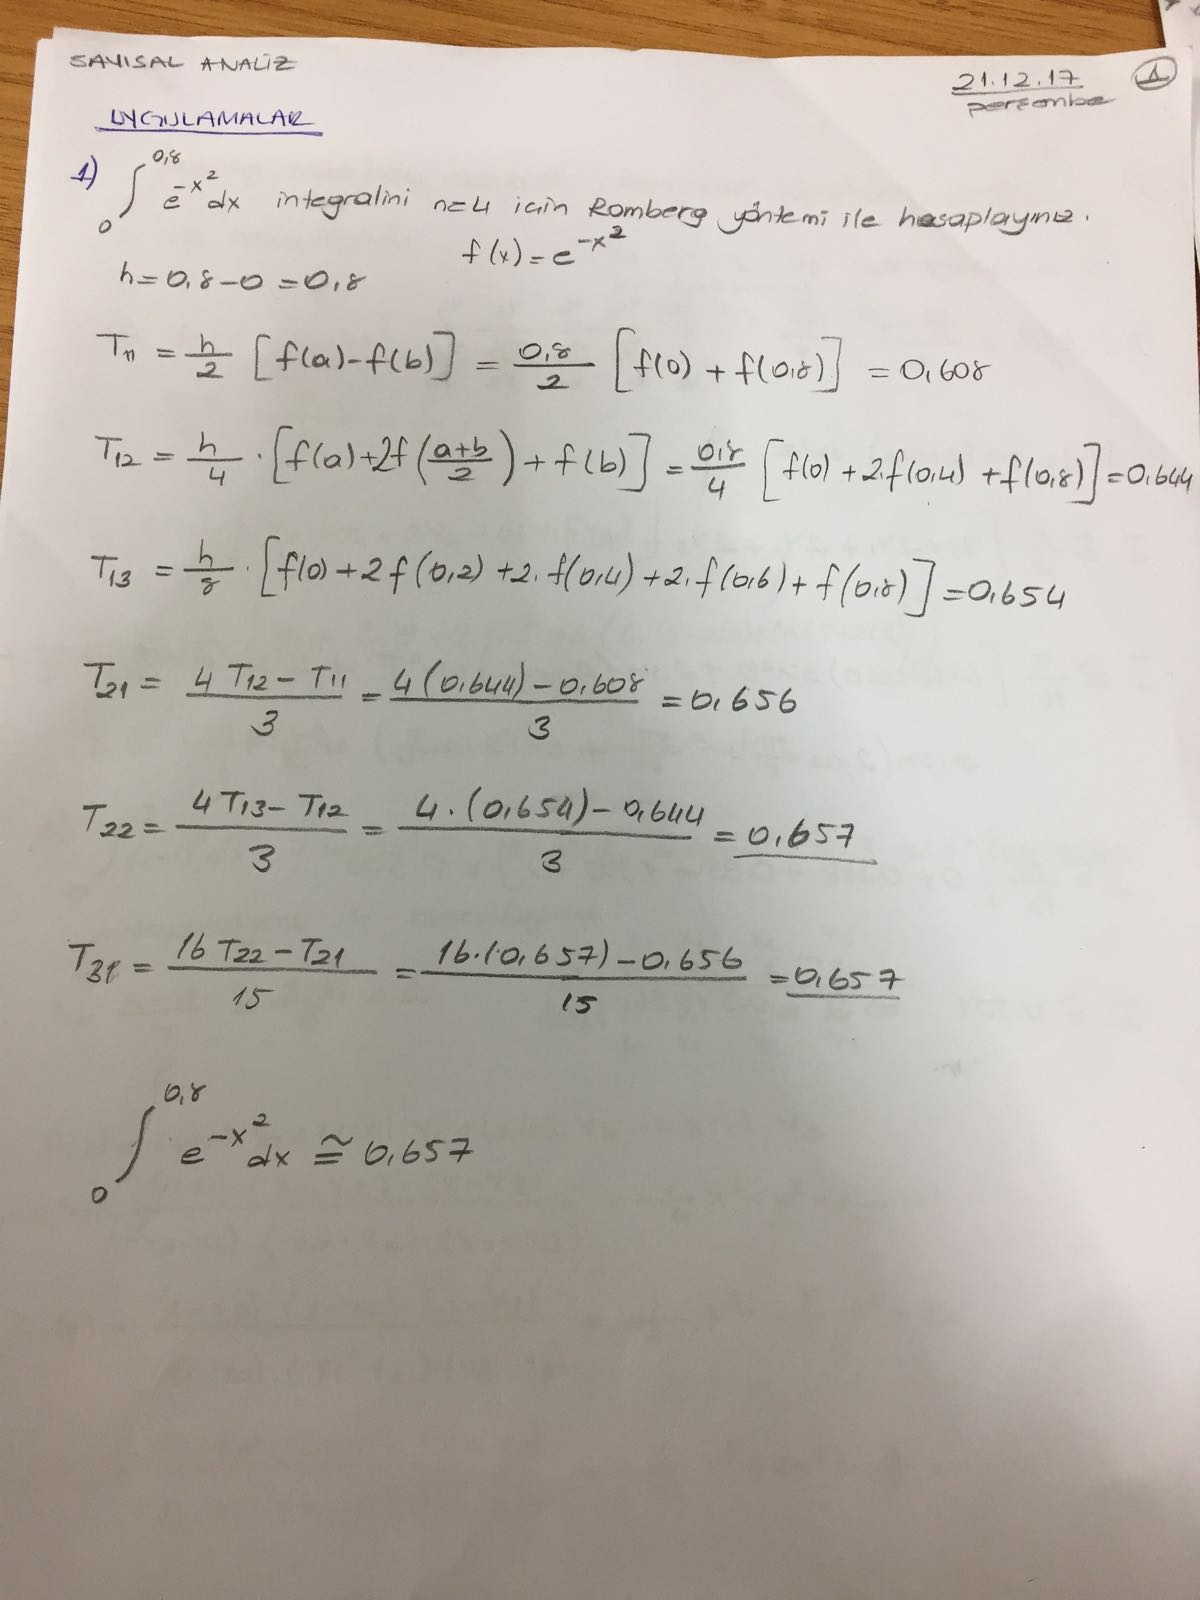 SAYISAL ANALİZ
21.12.17
perşembe
1
UYGULAMALAR
1) ∫₀^0,8 e^-x² dx integralini n=4 için Romberg yöntemi ile hesaplayınız.
f(x)=e^-x²
h=0,8-0=0,8
T11 = h/2 [f(a)-f(b)] = 0,8/2 [f(0)+f(0,8)] = 0,608
T12 = h/4 · [f(a)+2f((a+b)/2)+f(b)] = 0,8/4 [f(0)+2.f(0,4)+f(0,8)] = 0,644
T13 = h/8 · [f(0)+2f(0,2)+2.f(0,4)+2.f(0,6)+f(0,8)] = 0,654
T21 = (4T12-T11)/3 = (4(0,644)-0,608)/3 = 0,656
T22 = (4T13-T12)/3 = (4.(0,654)-0,644)/3 = 0,657
T31 = (16T22-T21)/15 = (16.(0,657)-0,656)/15 = 0,657
∫₀^0,8 e^-x² dx ≅ 0,657